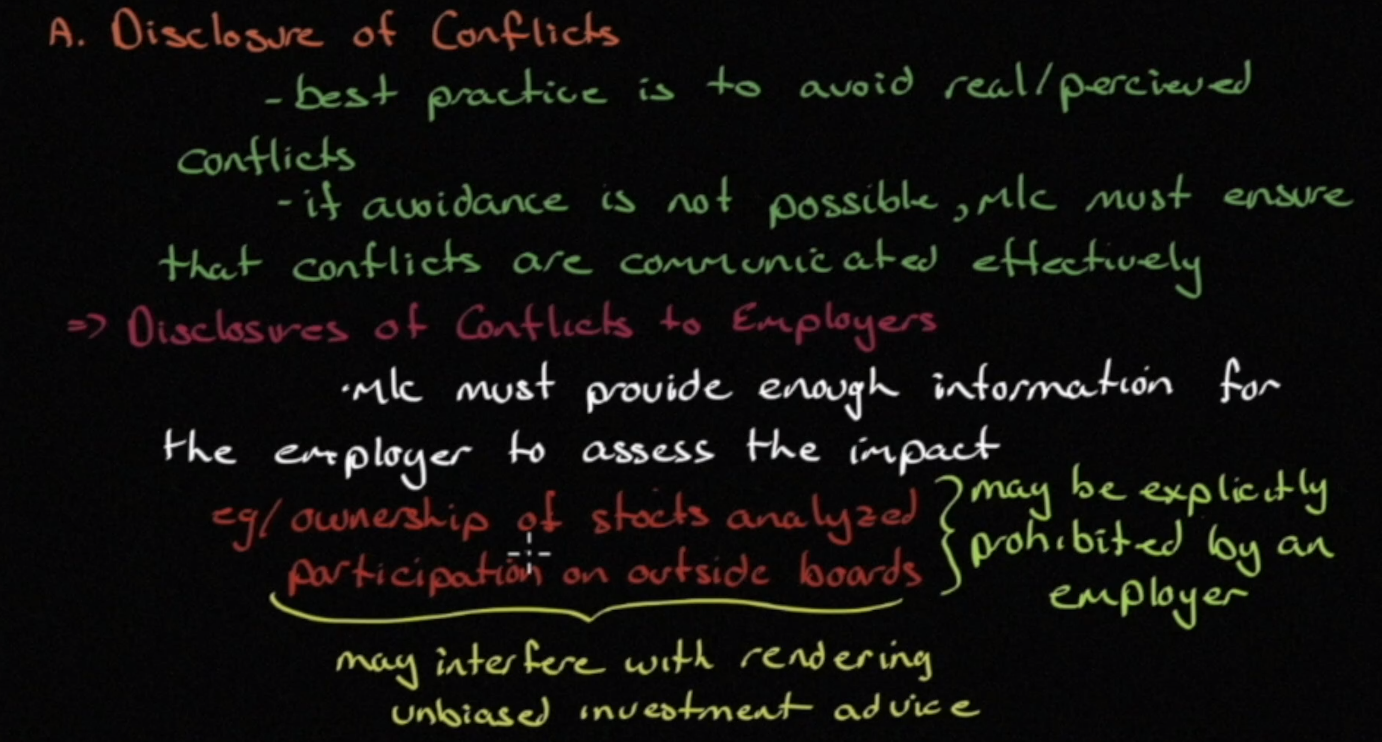 A. Disclosure of Conflicts
- best practice is to avoid real/percieved
conflicts
- if avoidance is not possible, M/c must ensure
that conflicts are communicated effectively
=> Disclosures of Conflicts to Employers
· M/c must provide enough information for
the employer to assess the impact
eg/ ownership of stocks analyzed
participation on outside boards
may be explicitly
prohibited by an
employer
may interfere with rendering
unbiased investment advice